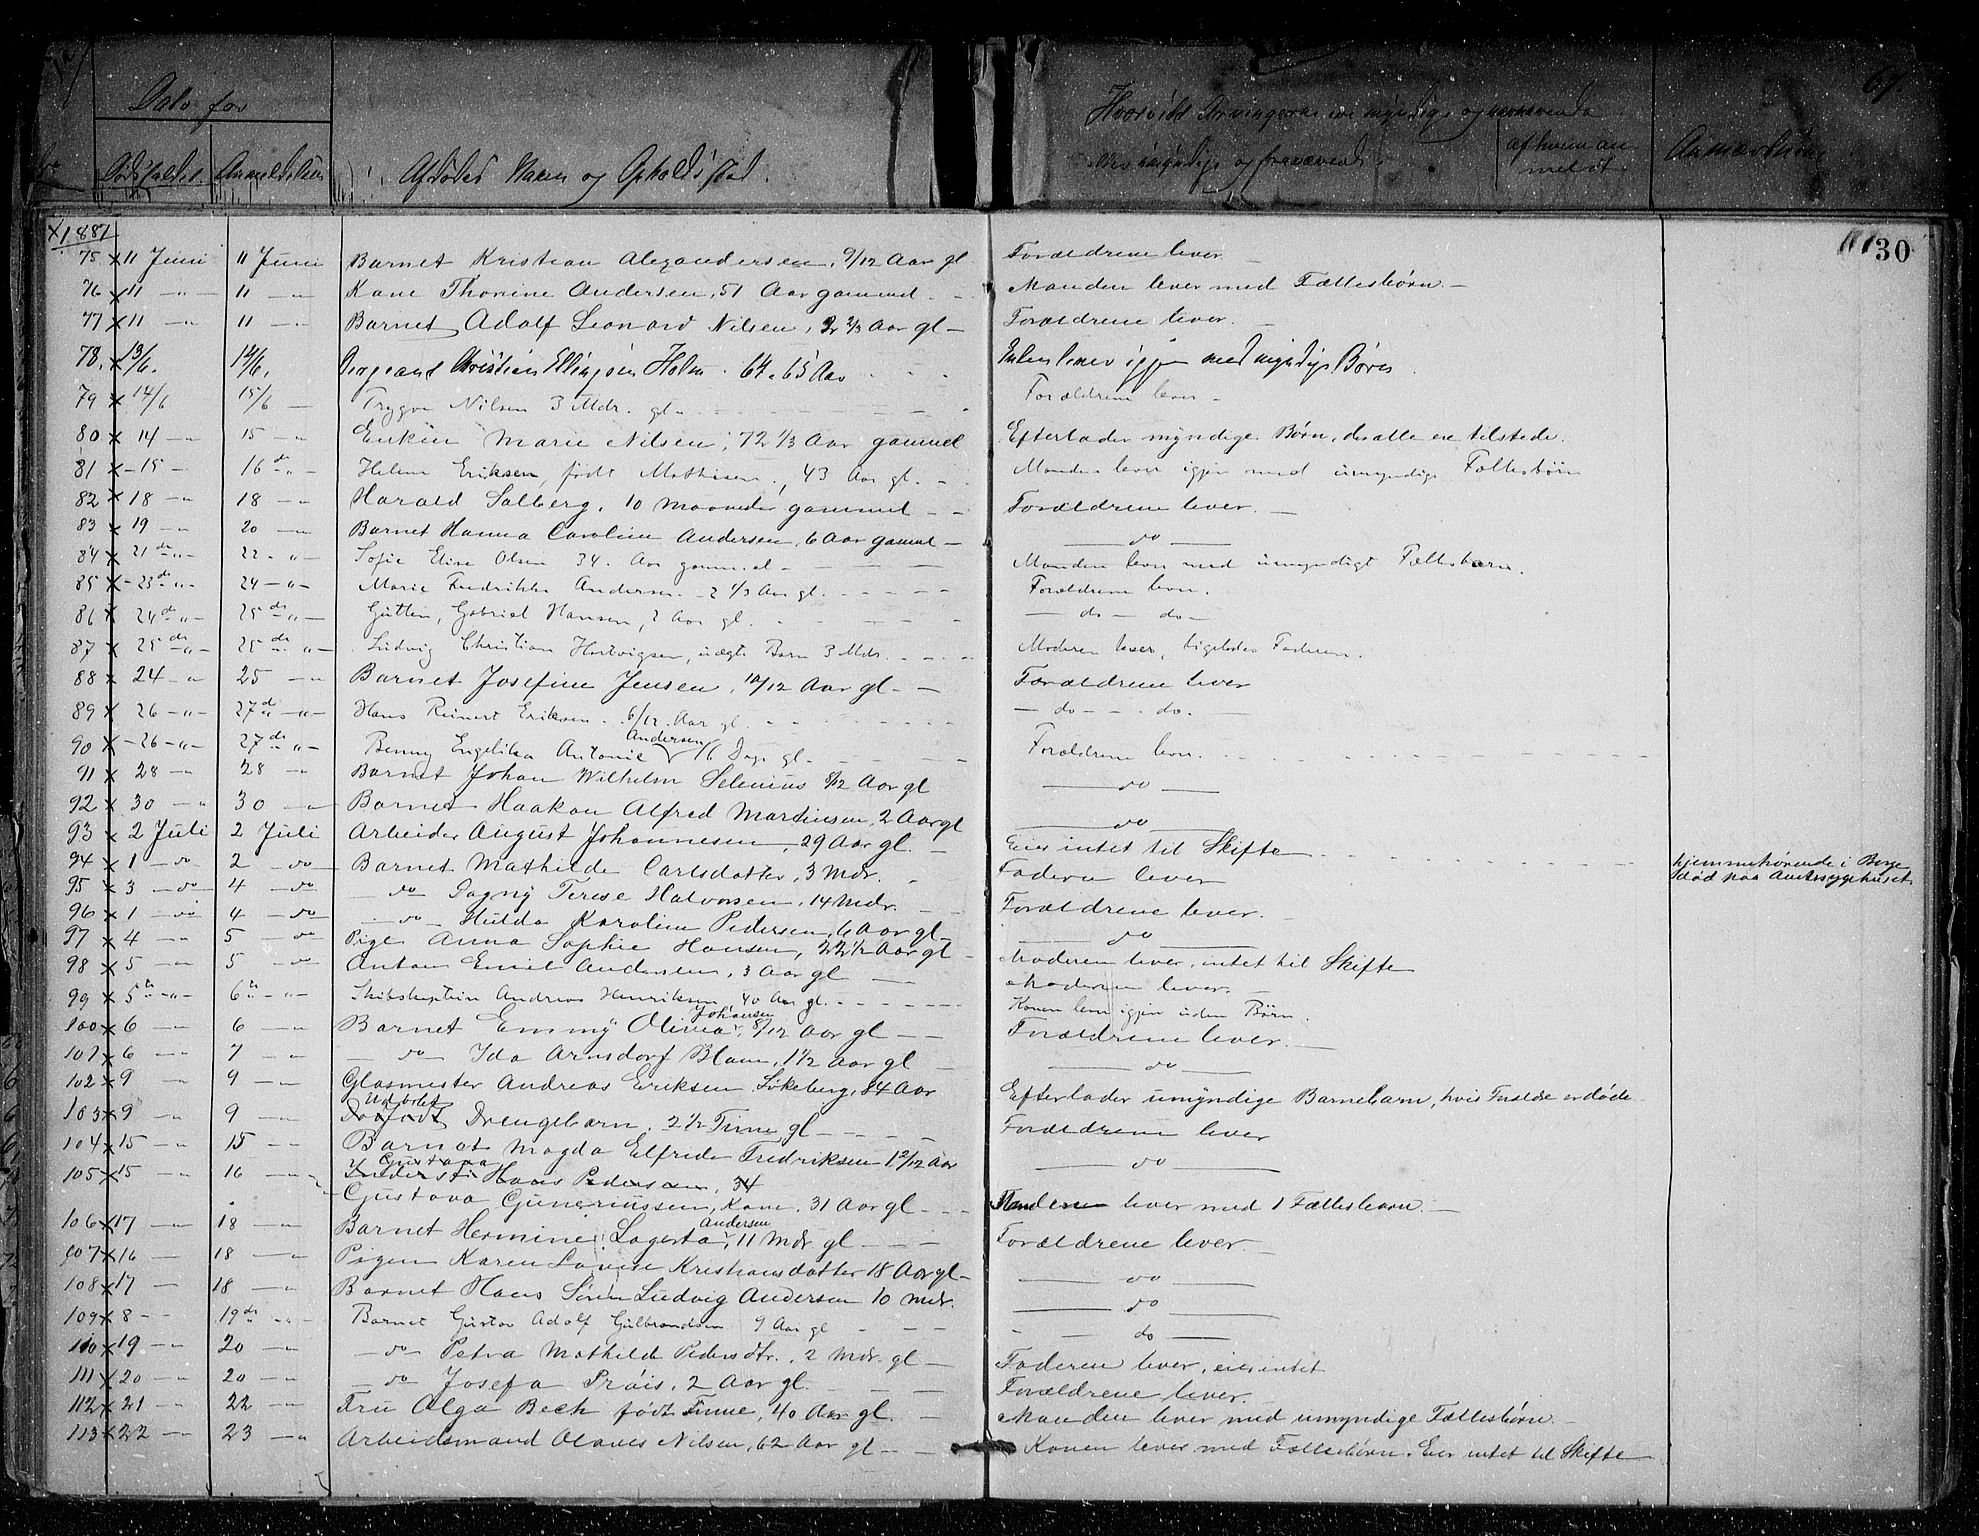 67.
Dato for
Hvorvidt Arvingerne ere myndige og nærværende
eller umyndige og fraværende.
af hvem an
meldt
Anmærkning
Dødsfaldet. Anmeldelsen
Afdødes Navn og Opholdssted.
1881
30
75 x 11 Juni 11 Juni Barnet Kristian Alexandersen, 9/12 Aar gl. Forældrene lever
76 x 11 —"— 11 —"— Kone Thorine Andersen, 51 Aar gammel. Manden lever med Fællesbørn. —
77 x 11 —"— 11 —"— Barnet Adolf Leonard Nilsen, 2 2/3 Aar gl — Forældrene lever. —
78. x 13/6. 14/6. Sergeant Christian Ellingsen Holm. 64 a 65 Aar Enken lever igjen med myndige Børn
79 x 14/6 15/6 — Trygve Nilsen 3 Mdr. gl. Forældrene lever —
80 x 14 —"— 15 —"— Enken Marie Nilsen, 72 1/3 Aar gammel Efterlader myndige Børn, der alle ere tilstede.
81 x — 15 — 16 de —"— Helene Eriksen, født Mathisen, 43 Aar gl. Manden lever igjen med umyndige Fællesbørn
82 x 18 —"— 18 —"— Harald Solberg, 10 Maaneder gammel — Forældrene lever. —
83 x 19 —"— 20 —"— Barnet Hanna Caroline Andersen, 6 Aar gammel — — do —
84 x 21 de —"— 22 —"— Sofie Elise Olsen 34. Aar gammel — Manden lever med umyndigt Fællesbarn.
85 x — 23 de —"— 24 —"— Marie Fredrikke Andersen — 2 1/3 Aar gl. Forældrene lever.
86 x 24 de —"— 25 de —"— Gutten, Gabriel Hansen, 2 Aar gl. — do — do —
87 x 25 de —"— 25 de —"— Ludvig Christian Hartvigsen, uægte Barn 3 Mdr. Moderen lever, ligeledes Faderen.
88 x 24 —"— 25 —"— Barnet Josefine Jensen, 10/12 Aar gl — Forældrene lever
89 x 26 —"— 27 de —"— Hans Reinert Eriksen. 6/12 Aar gl. — do — — do. —
Andersen
90 x — 26 —"— 27 de —"— Benny Engelika Antonie 16 Dage gl. Forældrene lever.
91 x 28 —"— 28 —"— Barnet Johan Wilhelm Selenius 8/12 Aar gl — do —
92 x 30 —"— 30 —"— Barnet Haakon Alfred Martinsen, 2 Aar gl — do —
93 x 2 Juli 2 Juli Arbeider August Johannesen, 29 Aar gl. — Eier intet til Skifte hjemmehørende i Borge
død paa Amtssygehuset
94 x 1 — do 2 — do Barnet Mathilde Carlsdatter, 3 Mdr. Faderen lever
95 x 3 — do 4 — do — do Dagny Terese Halvorsen, 14 Mdr. Forældrene lever. —
96 x 1 — do 4 — do — do — Hulda Karoline Pedersen, 6 Aar gl — — do —
97 x 4 —"— 5 — do Pige Anna Sophie Hansen, 22 1/2 Aar gl — Moderen lever, intet til Skifte
98 x 5 —"— 5 — do — Anton Emil Andersen, 3 Aar gl — Moderen lever. —
99 x 5 te —"— 6 te —"— Skibskaptein Andreas Henriksen, 40 Aar gl. Konen lever igjen uden Børn.
Johansen
100 x 6 —"— 6 —"— Barnet Emmy Olivia, 8/12 Aar gl — Forældrene lever. —
101 x 6 —"— 7 —"— — do Ida Arnsdorf Blam, 1 1/2 Aar gl — — do —
102 x 9 —"— 9 —"— Glasmester Andreas Eriksen Løkeberg, 84 Aar Efterlader umyndige Barnebarn, hvis Forældre er døde
Udøbt
103 x 9 —"— 9 —"— Dødfødt Drengebarn. 2 1/2 Time gl — Forældrene lever
104 x 15 —"— 15 —"— Barnet Magda Elfrida Fredriksen 1 2/12 Aar — do —
Gustava
105 x 15 —"— 16 —"— Hans Pedersen, 34
Gustava Guneriussen, Kone, 31 Aar gl — Manden lever med 1 Fællesbarn. —
Andersen
106 x 17 —"— 18 —"— Barnet Hermine Lagerta, 11 Mdr gl — Forældrene lever. —
107 x 16 — 18 —"— Pigen Karen Lovise Kristiansdatter 18 Aar gl — — do —
108 x 17 — 18 —"— Barnet Hans Søren Ludvig Andersen 10 Mdr. — do —
109 x 8 — 19 de —"— Barnet Gustav Adolf Gulbrandsen 9 Aar gl — do —
110 x 19 —"— 20 —"— — do — Petra Mathilde Pedersdtr., 2 Mdr. gl — Faderen lever, eier intet
111 x 20 —"— 20 —"— — do Josefa Prøis, 2 Aar gl. Forældrene lever.
112 x 21 —"— 22 —"— Fru Olga Bech født Finne, 40 Aar gl. — Manden lever med umyndige Fællesbørn —
113 x 22 —"— 23 —"— Arbeidsmand Olaves Nilsen, 62 Aar gl — Konen lever med Fællesbørn. Eier intet til Skifte